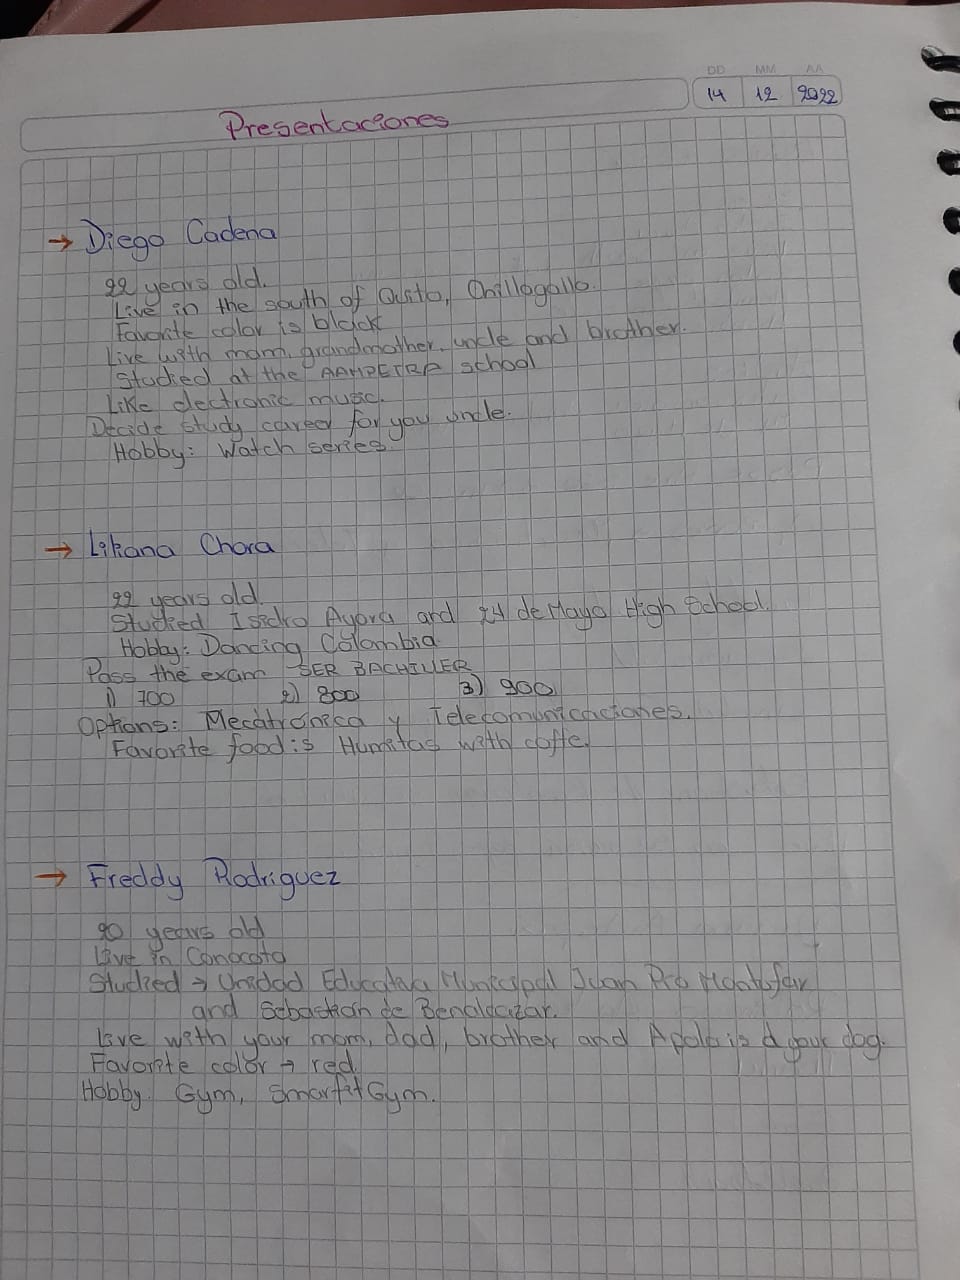 DD MM AA
14 12 2022
Presentaciones
→ Diego Cadena
22 years old.
Live in the south of Quito, Chillogallo.
Favorite color is black
Live with mom, grandmother, uncle and brother.
Studied at the school
Like electronic music.
Decide study career for you uncle.
Hobby: Watch series.
→ Liliana Chora
22 years old.
Studied Isidro Ayora and 24 de Mayo High School.
Hobby: Dancing Colombia.
Pass the exam SER BACHILLER
1) 700 2) 800 3) 900
Options: Mecátronica y Telecomunicaciones.
Favorite food is Humitas with coffe.
→ Freddy Rodriguez
20 years old
Live in Conocoto
Studied → Unidad Educativa Municipal Juan Pio Montufar
and Sebastian de Benalcazar.
Live with your mom, dad, brother and Apolo is d your dog.
Favorite color → red.
Hobby. Gym, Smartfit Gym.